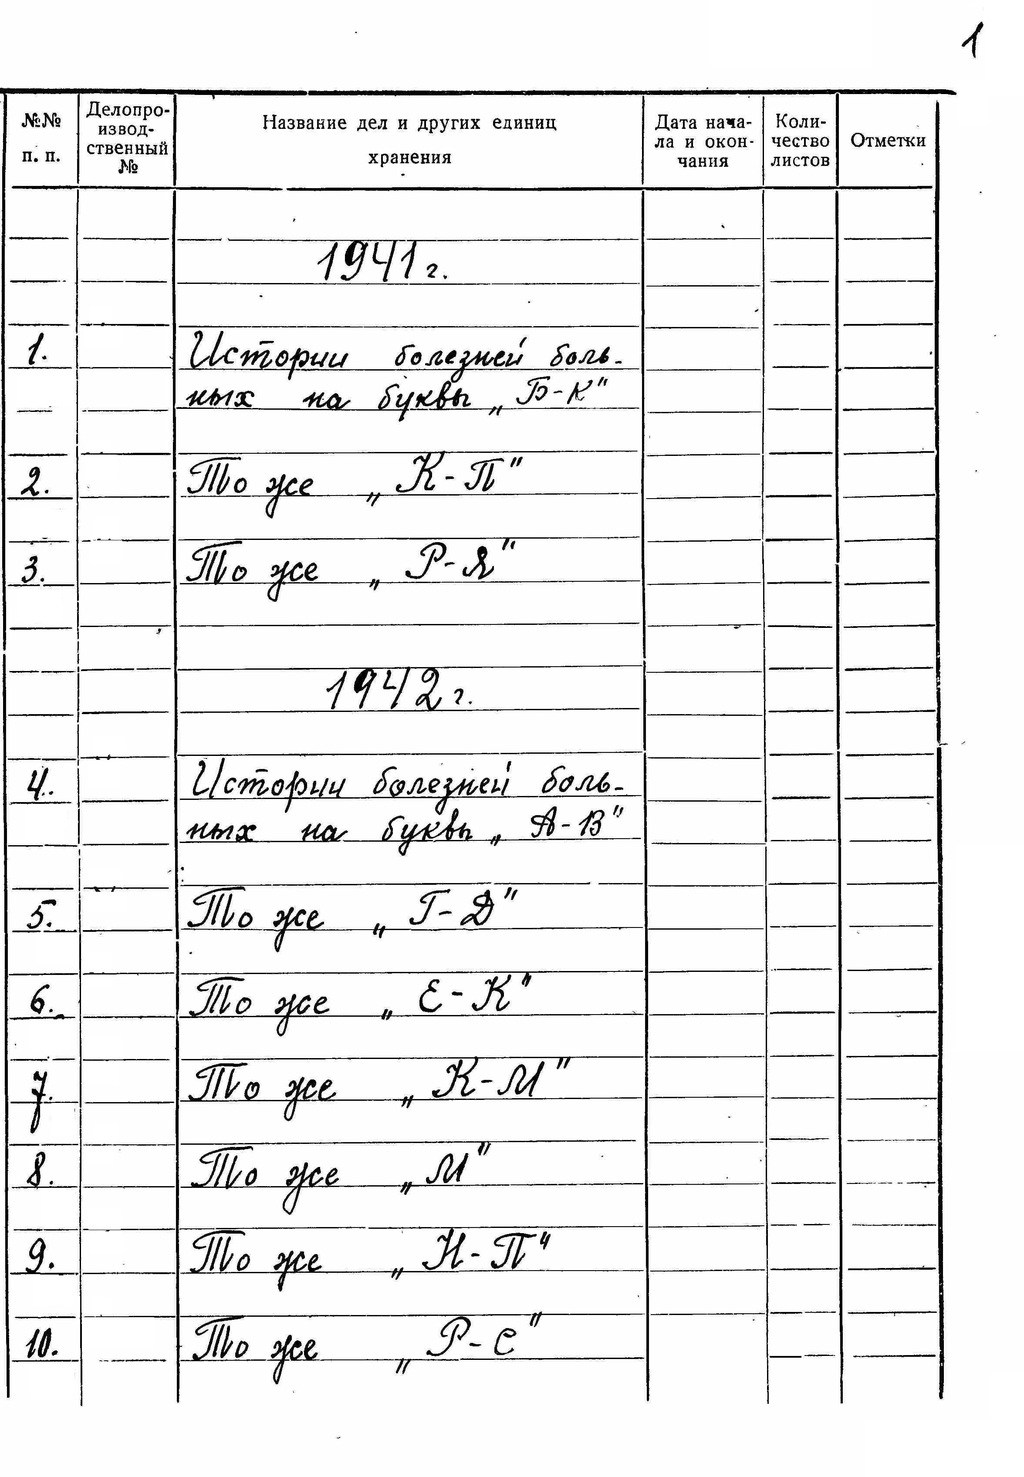 1
№№ п. п.
Делопро-
извод-
ственный
№
Название дел и других единиц
хранения
Дата нача-
ла и окон-
чания
Коли-
чество
листов
Отметки
1941 г.
1. Истории болезней боль-
ных на буквы „Б-К"
2. То же „К-П"
3. То же „Р-Я"
1942 г.
4. Истории болезней боль-
ных на буквы „А-В"
5. То же „Г-Д"
6. То же „Е-К"
7. То же „К-М"
8. То же „М"
9. То же „Н-П"
10. То же „Р-С"